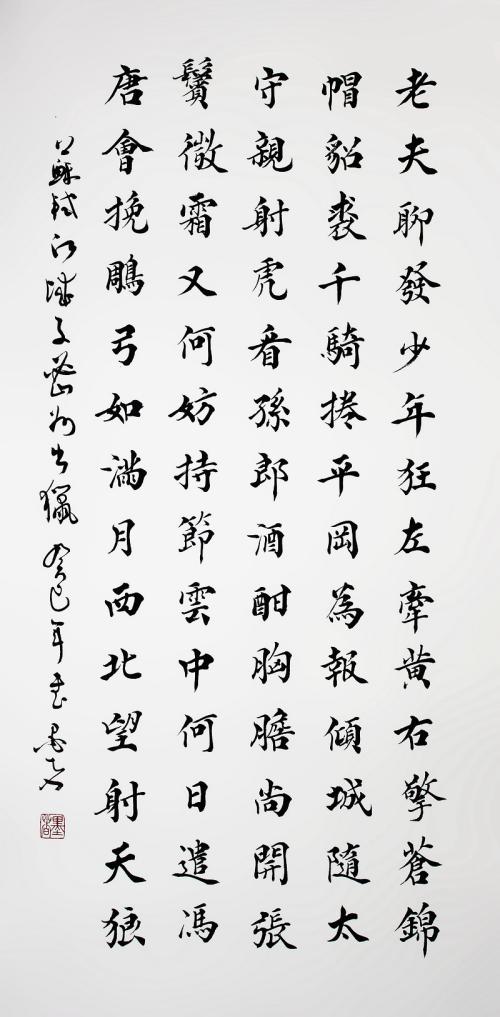 老夫聊發少年狂左牽黄右擎蒼錦
帽貂裘千騎捲平岡為報傾城隨太
守親射虎看孫郎酒酣胸膽尚開張
鬢微霜又何妨持節雲中何日遣馮
唐會挽雕弓如滿月西北望射天狼
蘇軾江城子密州出獵癸巳年書